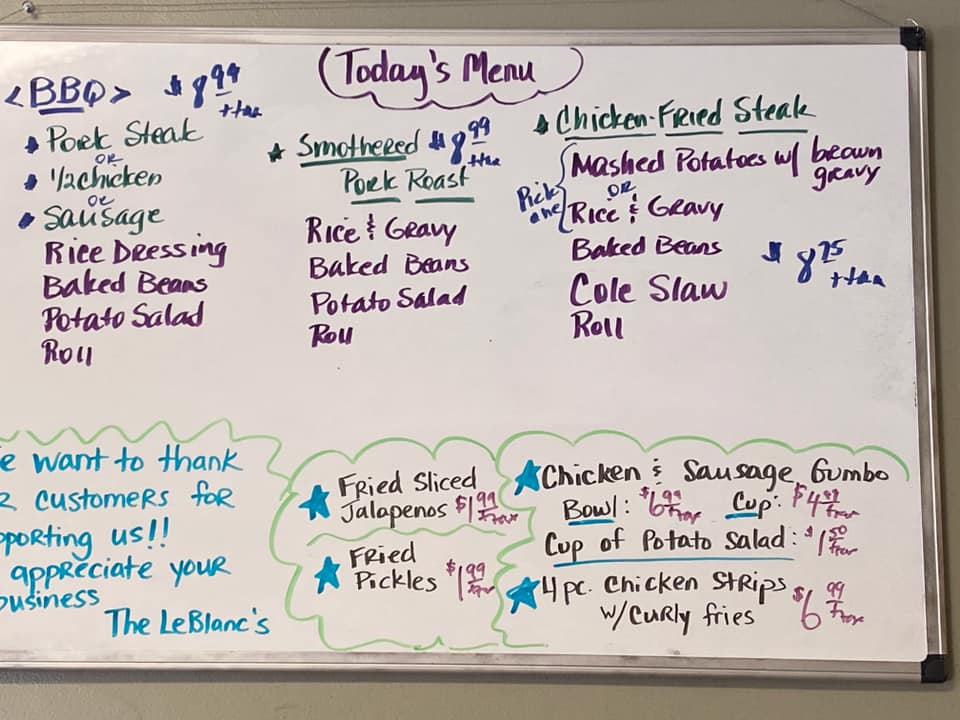 Today's Menu
<BBQ> $8.99 + tax
Pork Steak
OR
1/2 chicken
OR
Sausage
Rice Dressing
Baked Beans
Potato Salad
Roll
Smothered $8.99 + tax
Pork Roast
Rice & Gravy
Baked Beans
Potato Salad
Roll
Chicken-Fried Steak
Mashed Potatoes w/ brown
gravy
Pick one
OR
Rice & Gravy
Baked Beans
Cole Slaw
Roll
$8.75 + tax
e want to thank
customers for
pporting us!!
appreciate your
business
The LeBlanc's
Fried Sliced
Jalapenos $1.99 + tax
Fried
Pickles $1.99 + tax
Chicken & Sausage Gumbo
Bowl: $6.99 + tax Cup: $4.99 + tax
Cup of Potato Salad: $1.50 + tax
4 pc. Chicken Strips
w/curly fries $6.99 + tax